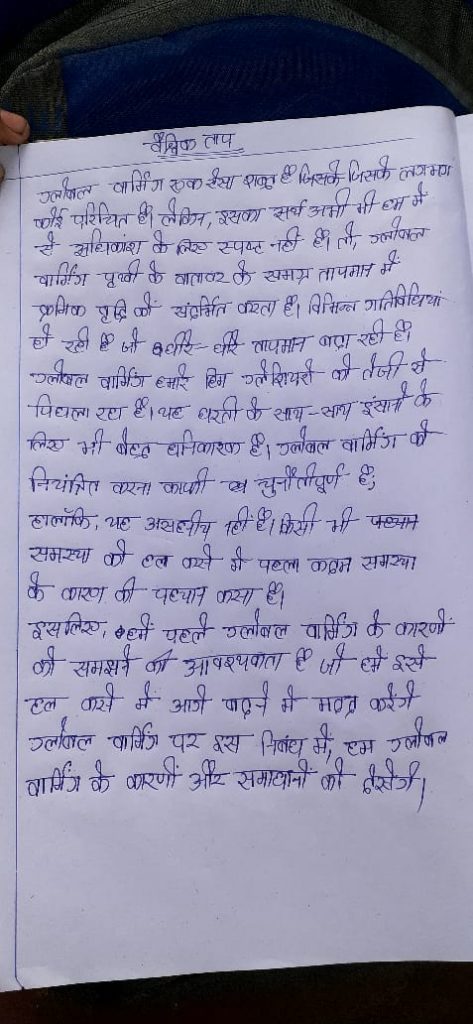 वैश्विक ताप
ग्लोबल वार्मिंग एक ऐसा शब्द है जिसके जिसके लगभग
कोई परिचित है। लेकिन, इसका अर्थ अभी भी हम में
से अधिकांश के लिए स्पष्ट नही है। तो, ग्लोबल
वार्मिंग पृथ्वी के वातावर के समग्र तापमान में
क्रमिक वृद्धि को संदर्भित करता है। विभिन्न गतिविधियां
हो रही है जो धीरे-धीरे तापमान बढ़ा रही है।
ग्लोबल वार्मिंग हमारे हिम ग्लेशियरो को तेजी से
पिघला रहा है। यह धरती के साथ-साथ इंसानो के
लिए भी बेहद हानिकारक है। ग्लोबल वार्मिंग को
नियंत्रित करना काफी चुनौतीपूर्ण है;
हालाँकि, यह असहनीय नहीं है। किसी भी
समस्या को हल करने मे पहला कदम समस्या
के कारण की पहचान करना है।
इसलिए, हमें पहले ग्लोबल वार्मिंग के कारणों
को समझने की आवश्यकता है जो हमें इसे
हल करने में आगे बढ़ने मे मदद करेंगे
ग्लोबल वार्मिंग पर इस निबंध में, हम ग्लोबल
वार्मिंग के कारणों और समाधानों को देखेगें।